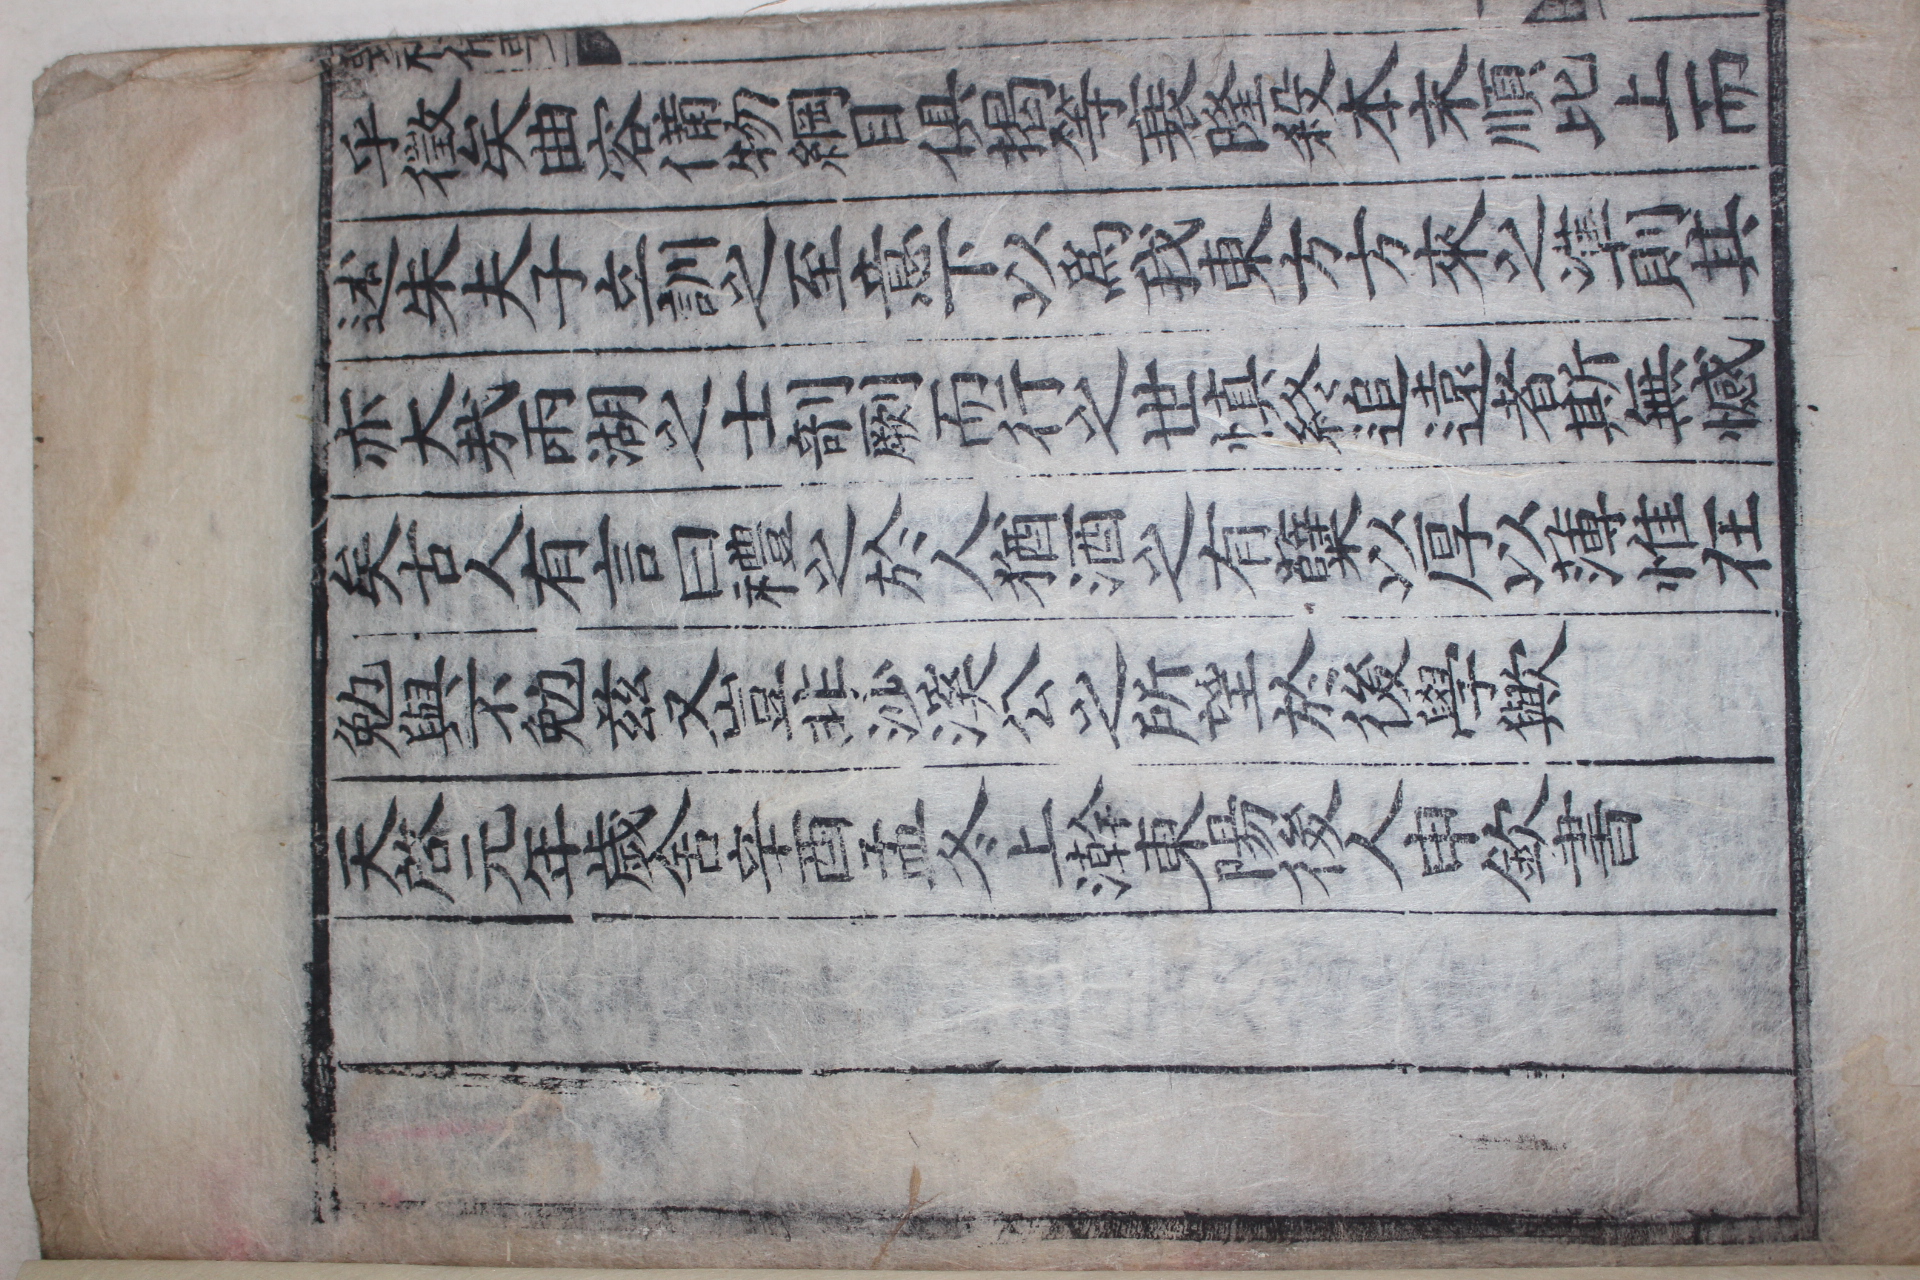 喪禮備要
乎徵矣曲容備物綱目俱揭等衰隆殺本末順比上而
述朱夫子立訓之至意下以爲我東方方來之準則其
亦大哉兩湖之士剞劂而行之世慎終追遠者斯無憾
矣古人有言曰禮之於人猶酒之有糵以厚以薄惟在
勉與不勉玆又豈非沙溪公之所望於後學歟
天啓元年歲舍辛酉孟冬上澣東陽後人申欽書